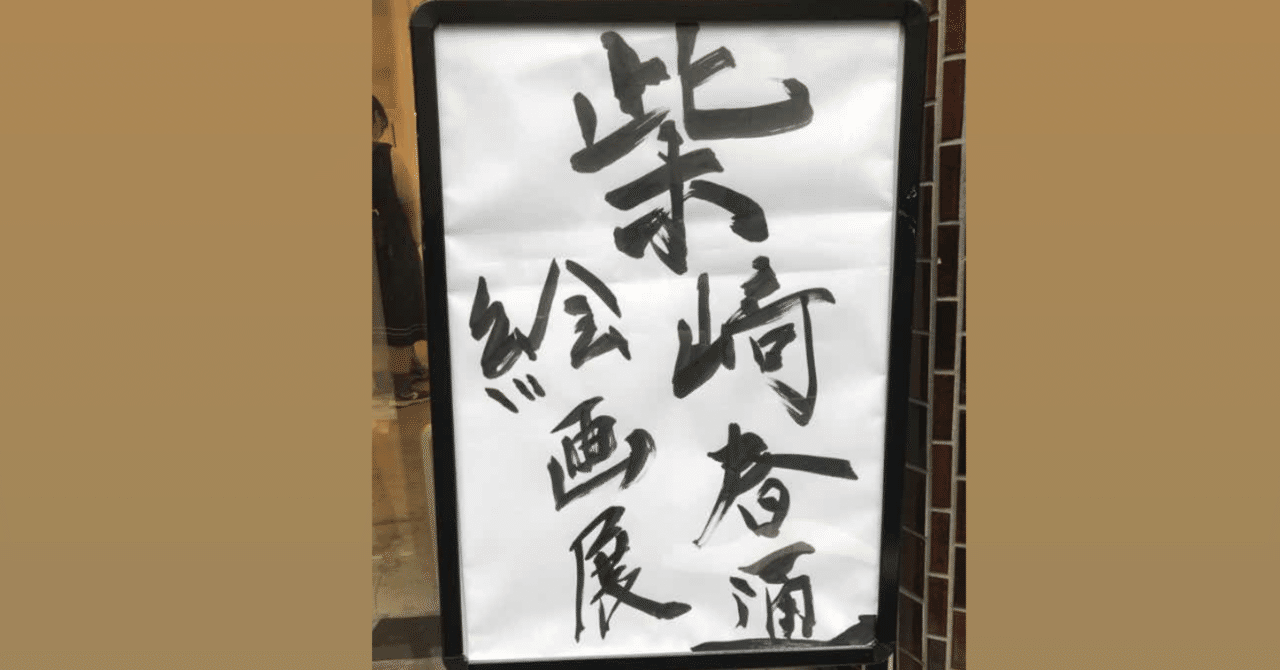 柴崎春涌
絵画展